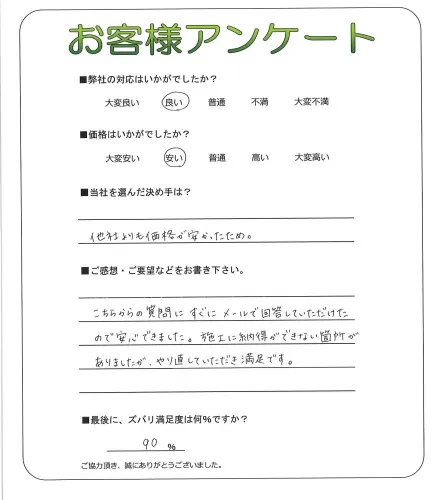 お客様アンケート
■弊社の対応はいかがでしたか？
大変良い 良い 普通 不満 大変不満
■価格はいかがでしたか？
大変安い 安い 普通 高い 大変高い
■当社を選んだ決め手は？
他社よりも価格が安かったため。
■ご感想・ご要望などをお書き下さい。
こちらからの質問にすぐにメールで回答していただけた
ので安心できました。施工に納得ができない箇所が
ありましたが、やり直していただき満足です。
■最後に、ズバリ満足度は何％ですか？
90 %
ご協力頂き、誠にありがとうございました。